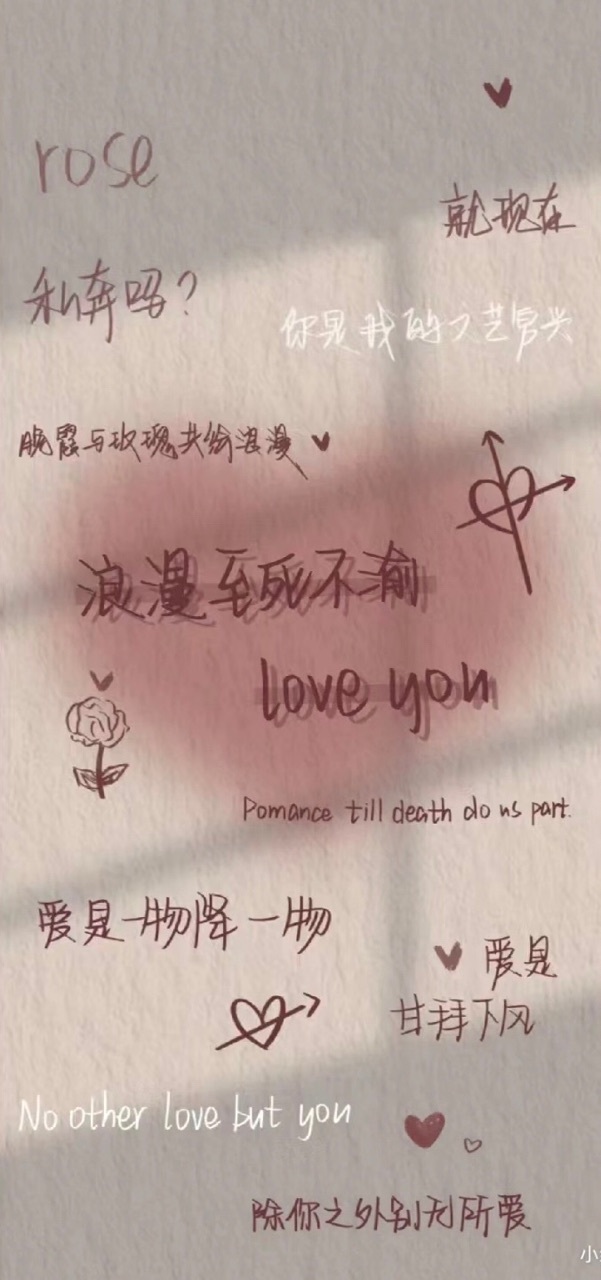 rose
就现在
私奔吗？
你是我的文艺复兴
晚霞与玫瑰共绘浪漫
浪漫至死不渝
love you
Pomance till death do us part.
爱是一物降一物
爱是
甘拜下风
No other love but you
除你之外别无所爱
小